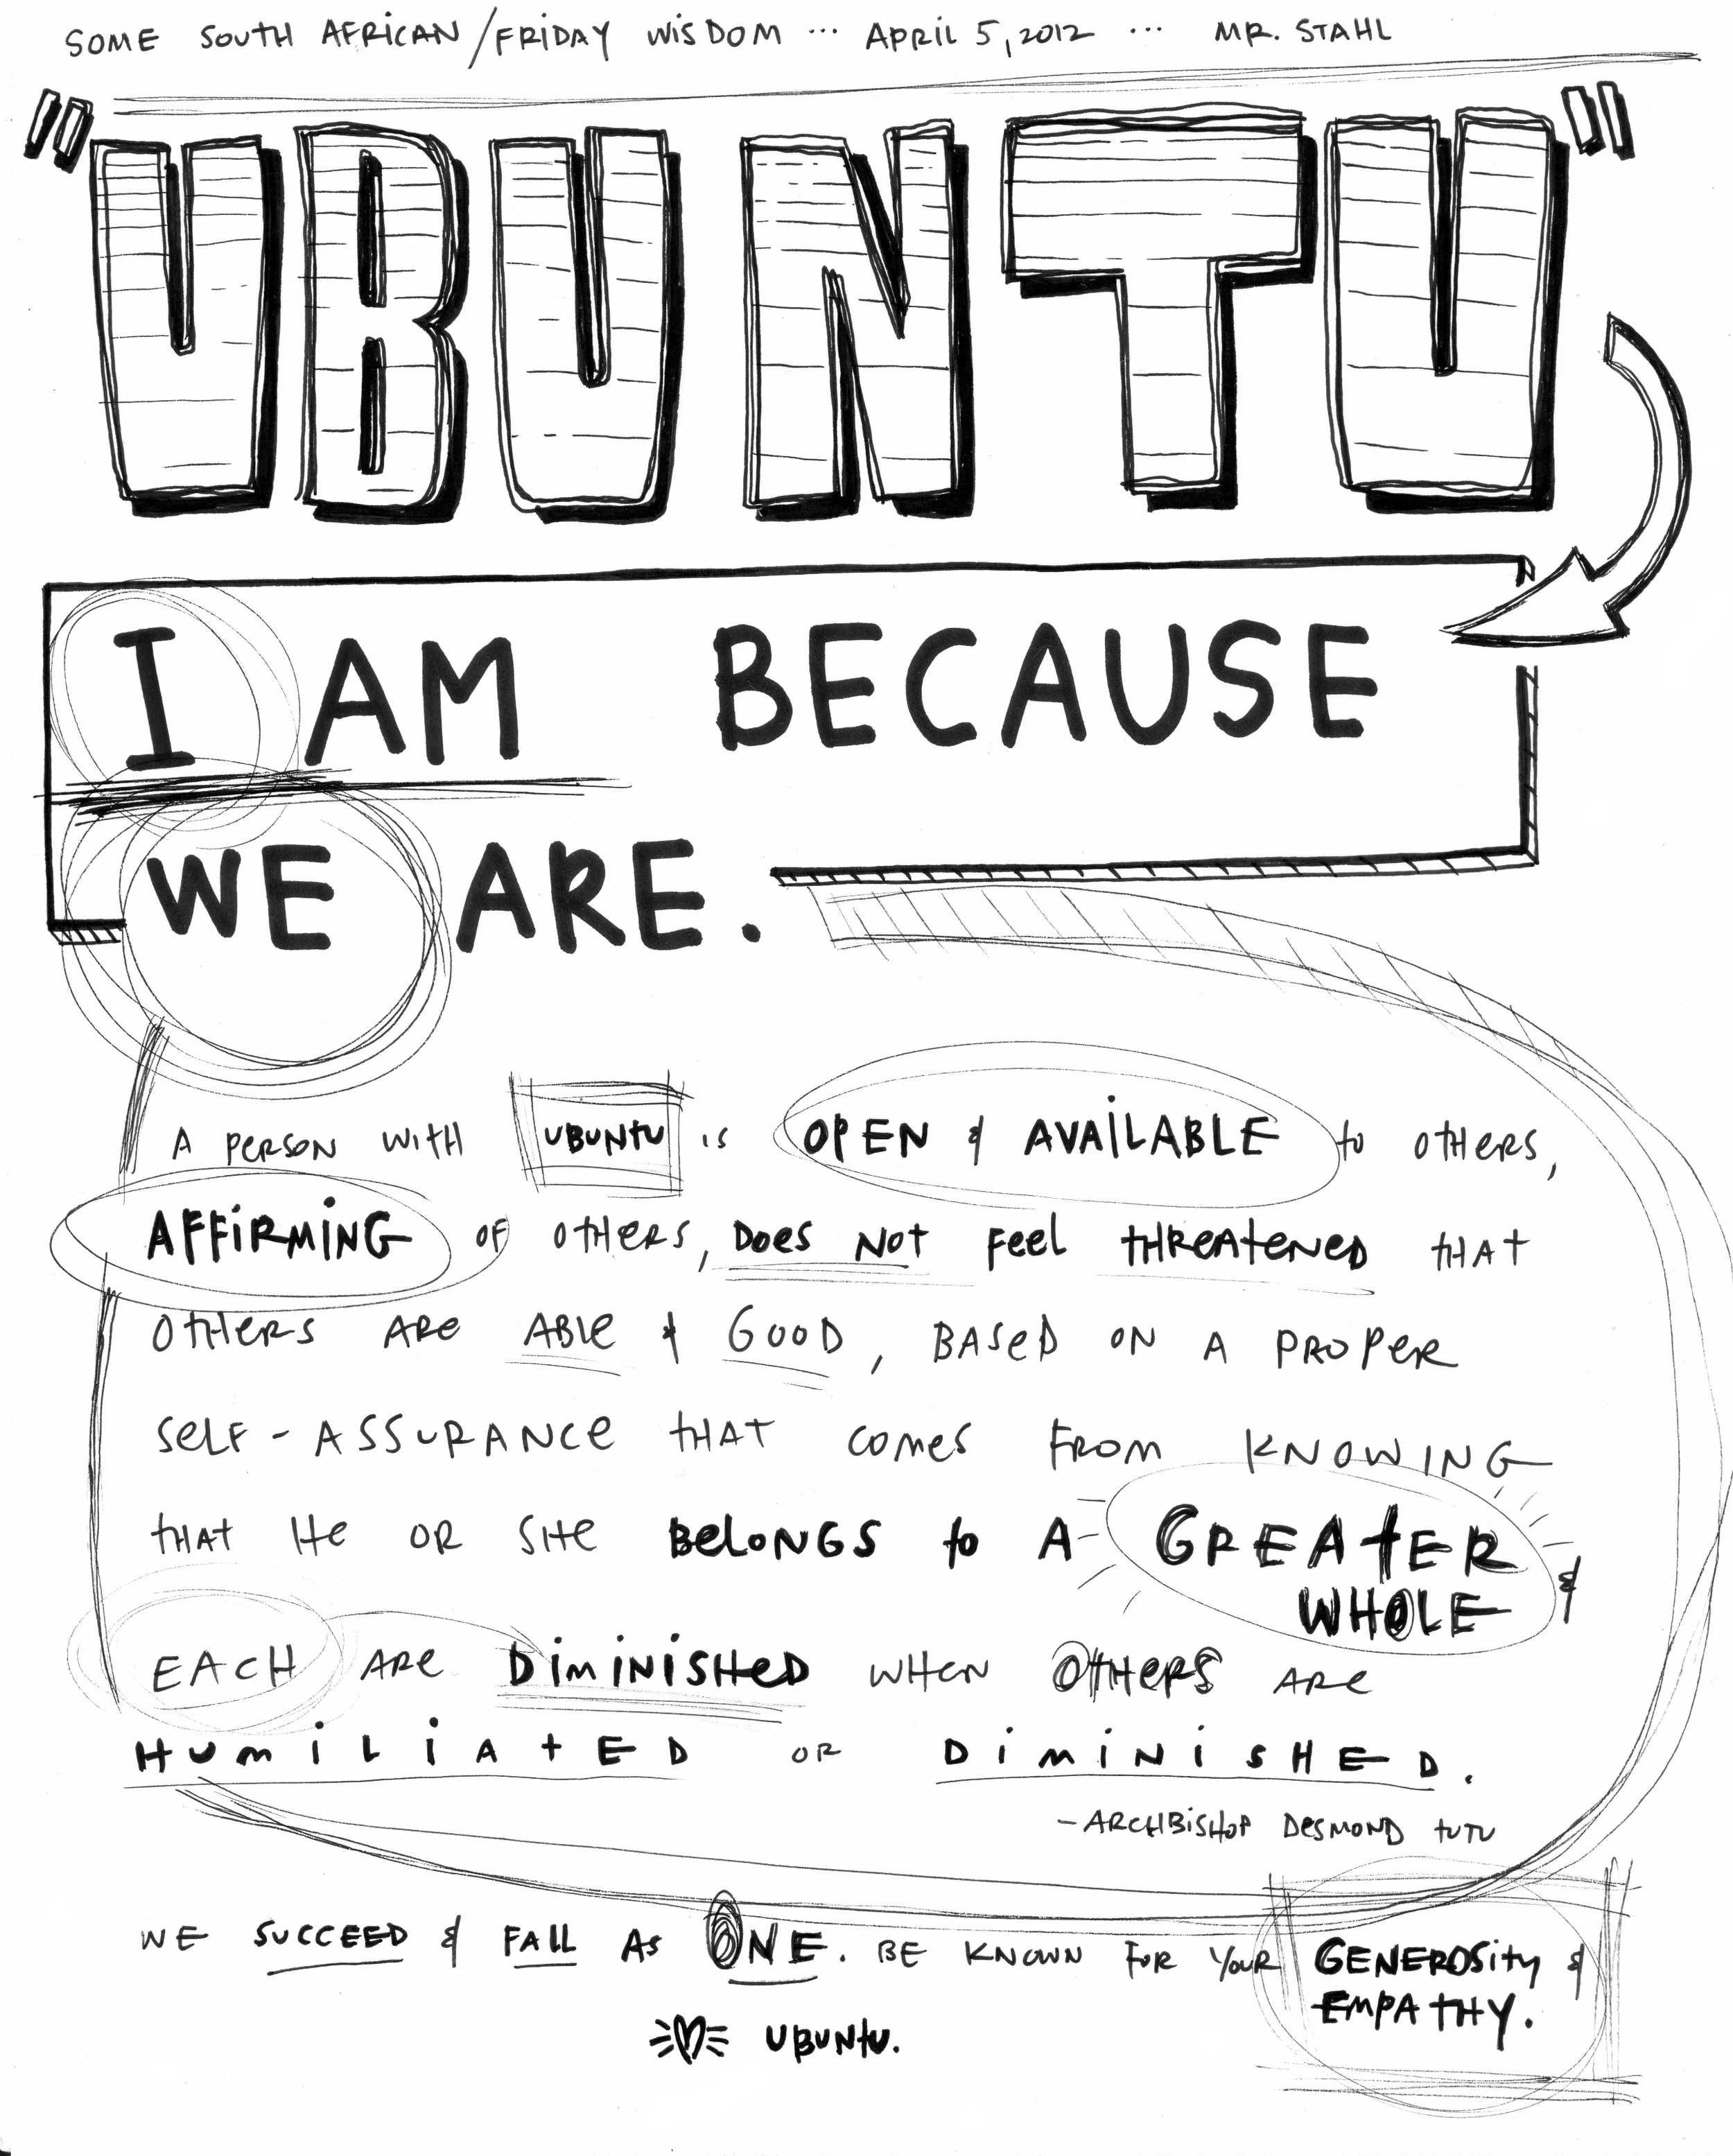 SOME SOUTH AFRICAN/FRIDAY WISDOM ... APRIL 5, 2012 ... MR. STAHL
"UBUNTU"
I AM BECAUSE
WE ARE.
A PERSON WITH UBUNTU IS OPEN & AVAILABLE to OTHERS,
AFFIRMING OF OTHERS, DOES NOT FEEL THREATENED THAT
OTHERS ARE ABLE & GOOD, BASED ON A PROPER
SELF-ASSURANCE THAT COMES FROM KNOWING
THAT HE OR SHE BELONGS to A GREATER
WHOLE &
EACH ARE DIMINISHED WHEN OTHERS ARE
HUMILIATED OR DIMINISHED.
-ARCHBISHOP DESMOND TUTU
WE SUCCEED & FALL AS ONE. BE KNOWN FOR YOUR GENEROSITY &
EMPATHY.
UBUNTU.